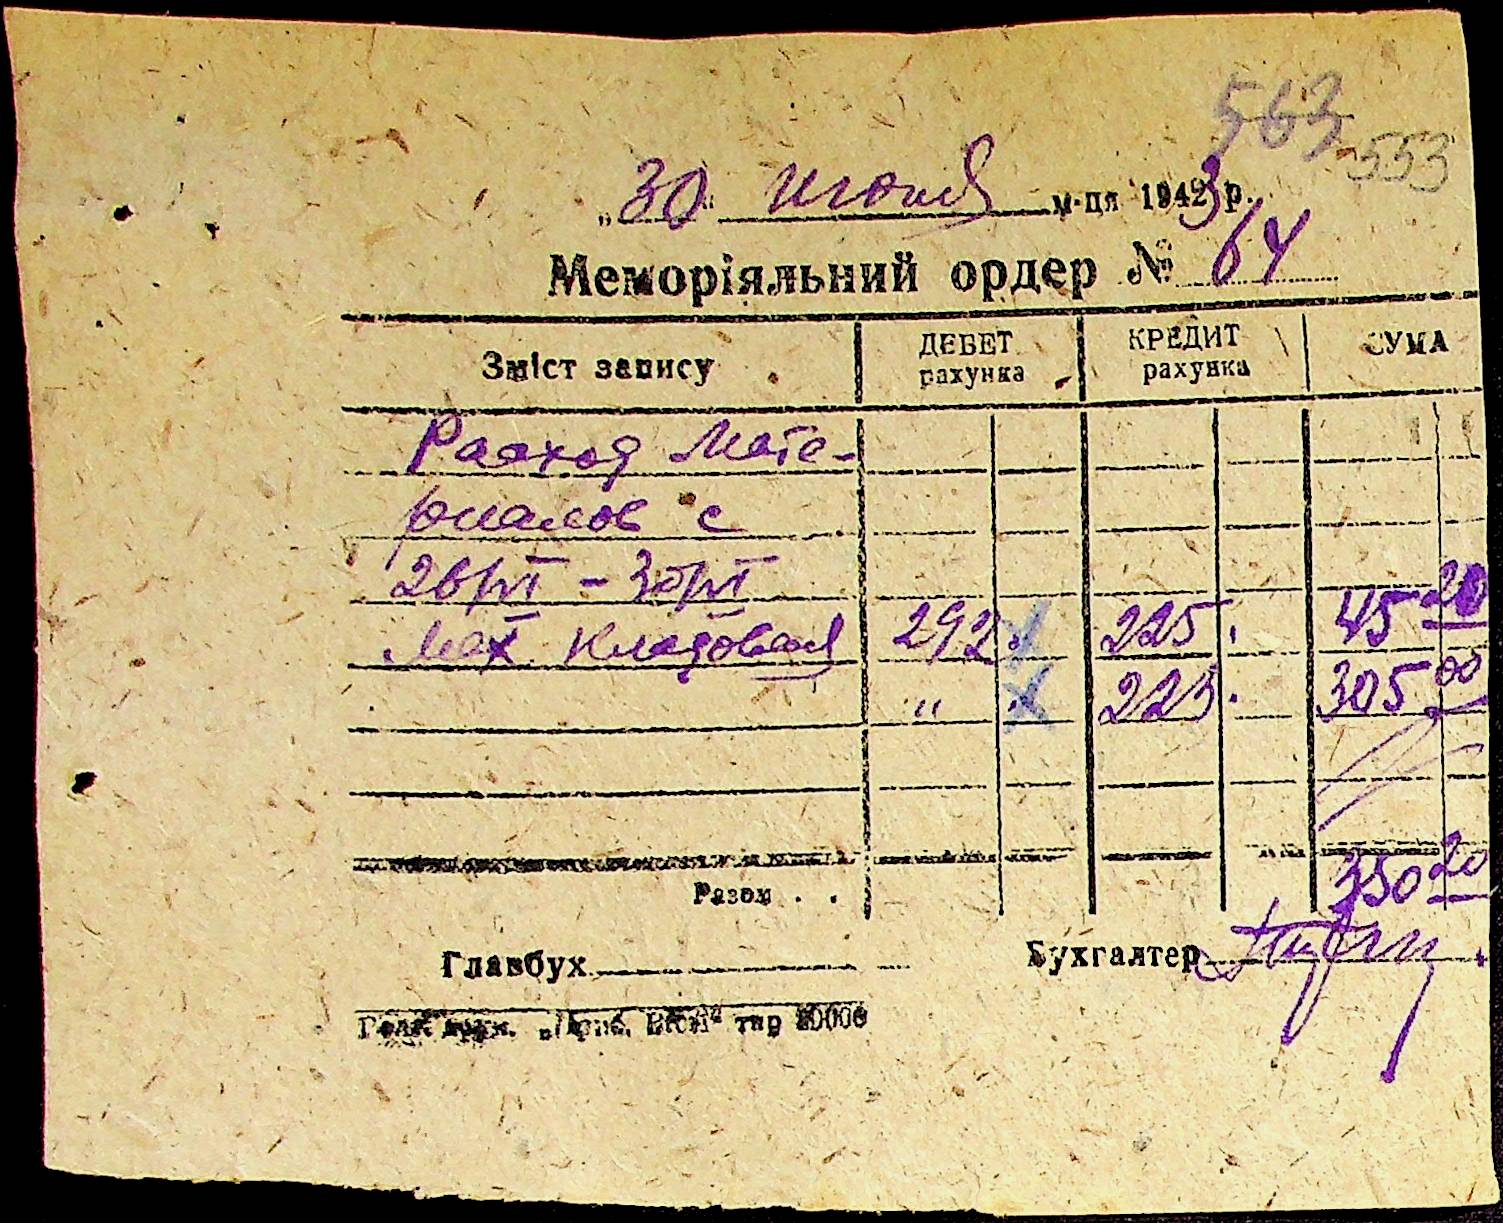 563
553
„30“ июня м-ця 1943 р.
Меморіяльний ордер № 64
Зміст запису ДЕБЕТ рахунка КРЕДИТ рахунка СУМА
Расход Мате-
риалов с
26/VI - 30/VI
Мех Кладовая 292 225 45 20
" 223 305 00
Разом . . 350 20
Главбух
Бухгалтер
тир 10000